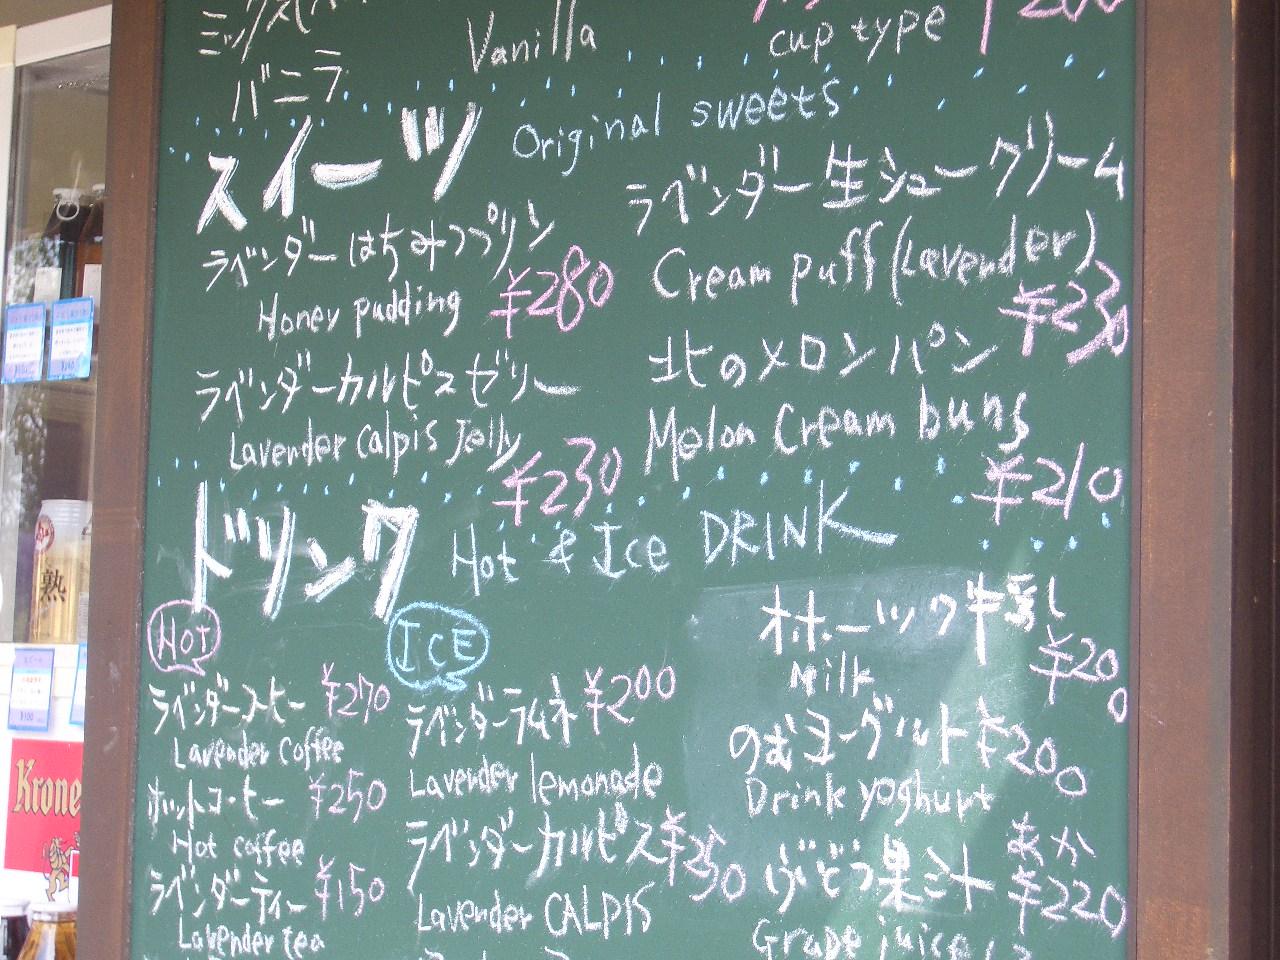 バニラ
Vanilla
cup type
¥200
スイーツ
Original sweets
ラベンダーはちみつプリン
Honey pudding
¥280
ラベンダーカルピスゼリー
Lavender Calpis Jelly
¥230
ラベンダー生シュークリーム
Cream puff (Lavender)
¥230
北のメロンパン
Melon Cream buns
¥210
ドリンク
Hot & Ice DRINK
HOT
ラベンダーコーヒー ¥270
Lavender coffee
ホットコーヒー ¥250
Hot coffee
ラベンダーティー ¥150
Lavender tea
ICE
ラベンダーラムネ ¥200
Lavender lemonade
ラベンダーカルピス ¥250
Lavender CALPIS
オホーツク牛乳
Milk
¥200
のむヨーグルト ¥200
Drink yoghurt
ぶどう果汁 あか
¥220
Grape juice
熟
Krone